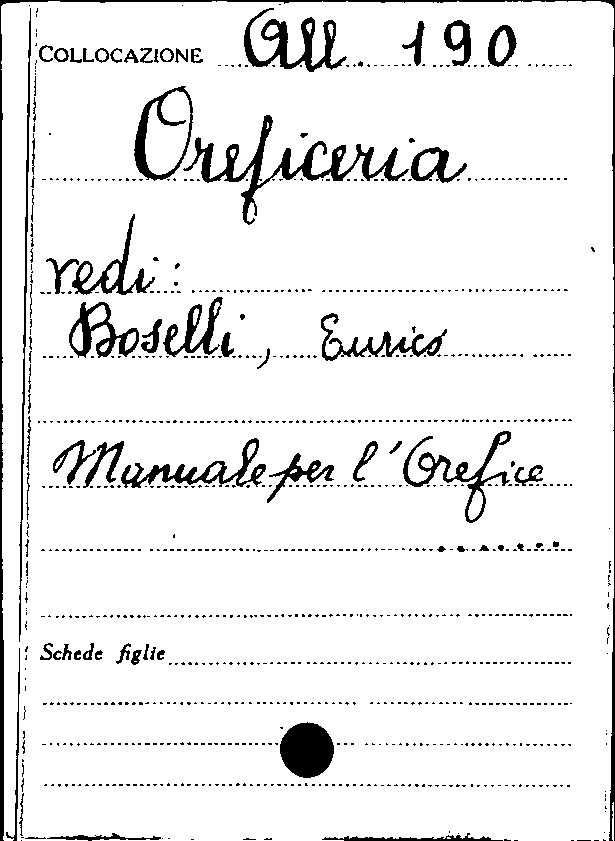 COLLOCAZIONE All. 190
Oreficeria
vedi:
Boselli, Eurico
Manuale per l'Orefice
.......
Schede figlie